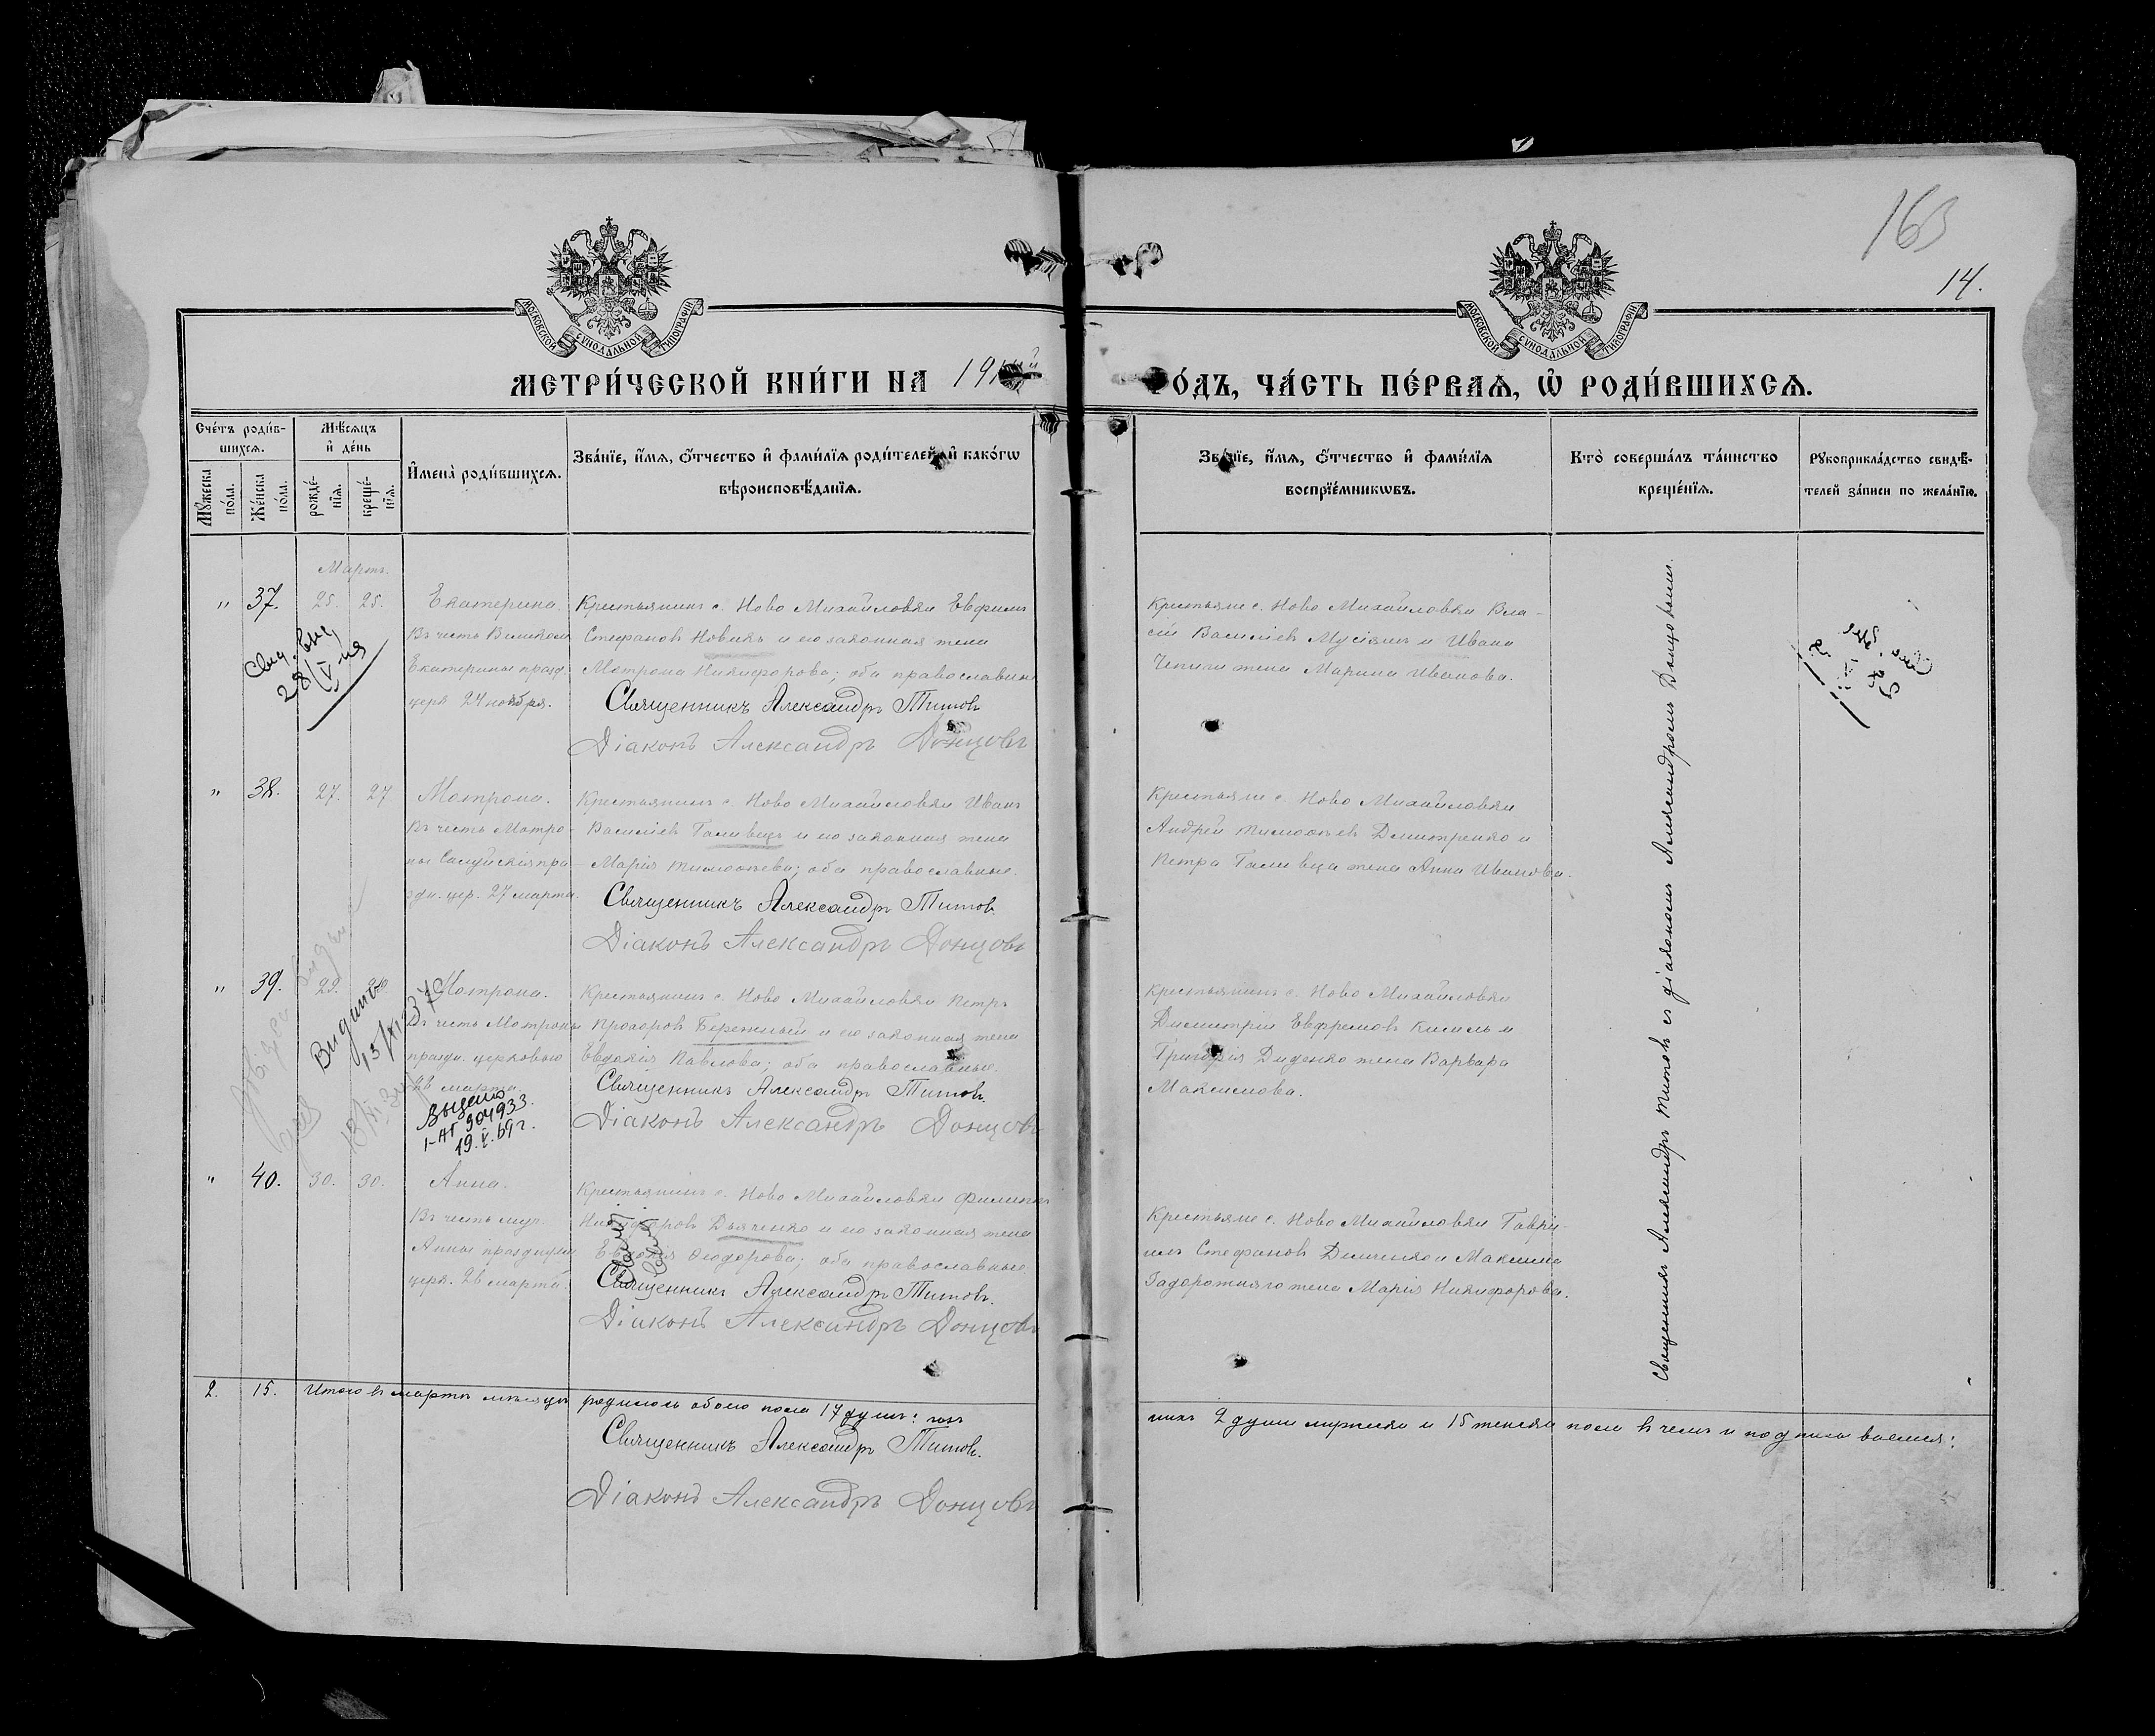 163
14.
МОСКОВСКОЙ СѴНОДАЛЬНОЙ ТИПОГРАФІИ
МОСКОВСКОЙ СѴНОДАЛЬНОЙ ТИПОГРАФІИ
МЕТРИ́ЧЕСКОЙ КНИ́ГИ НА 19
О́ДЪ, ЧА́СТЬ ПЕ́РВАѦ, Ѡ҆ РОДИ́ВШИХСѦ.
Сче́тъ роди́в-
шихсѧ.
Мѣ́сѧцъ
и҆ де́нь
Мꙋ́жеска
по́ла.
Же́нска
по́ла.
рожде́-
нїѧ.
креще́-
нїѧ.
И҆мена̀ роди́вшихсѧ.
Зва́нїе, и҆́мѧ, ѻ҆́тчество и҆ фами́лїѧ роди́телей, и҆ како́гѡ
вѣроисповѣ́данїѧ.
Зва́нїе, и҆́мѧ, ѻ҆́тчество и҆ фами́лїѧ
воспрїе́мникѡвъ.
Кто̀ соверша́лъ та́инство
креще́нїѧ.
Рꙋкоприкла́дство свидѣ́-
телей за́писи по жела́нїю.
Мартъ.
" 37. 25. 25. Екатерина.
Въ честь Великом.
Екатерины празд.
церк 24 ноября.
28/V
Крестьянинъ с. Ново Михайловки Евфимъ
Стефановъ Новикъ и его законная жена
Мотрона Никифорова; оба православные
Священникъ Александръ Титовъ
Діаконъ Александръ Донцовъ
Крестьяне с. Ново Михайловки Вла-
сій Василіевъ Мусіянъ и Ивана
Чепили жена Марина Иванова.
" 38. 27. 27 Мотрона.
Въ честь Мотро-
ны Солунскія пра-
здн. цер. 27 марта.
Крестьянинъ с. Ново Михайловки Иванъ
Василіевъ Галивецъ и его законная жена
Марія Тимоѳеева; оба православные.
Священникъ Александръ Титовъ
Діаконъ Александръ Донцовъ
Крестьяне с. Ново Михайловки
Андрей Тимоѳеевъ Дмитренко и
Петра Галивца жена Анна Иванова.
" 39. 29. Мотрона.
Въ честь Мотроны
праздн. церковью
марта.
Видано
Выдано
I-АГ 904933.
19.V.69г.
Крестьянинъ с. Ново Михайловки Петръ
Прохоровъ Бережный и его законная жена
Евдокія Павлова; оба православные.
Священникъ Александръ Титовъ.
Діаконъ Александръ Донцовъ
Крестьянинъ с. Ново Михайловки
Димитрій Евфремовъ Кисиль и
Григорія Диденко жена Варвара
Максимова.
" 40. 30. 30. Анна.
Въ честь муч.
Анны празднуем
церк. 26 марта.
Крестьянинъ с. Ново Михайловки Филиппъ
Никифоровъ Дьяченко и его законная жена
Евдокія Ѳеодорова; оба православные
Священникъ Александръ Титовъ.
Діаконъ Александръ Донцовъ
Крестьяне с. Ново Михайловки Гаврі-
илъ Стефановъ Демченко и Максима
Задорожняго жена Марія Никифорова.
Священникъ Александръ Титовъ съ діакономъ Александромъ Донцовымъ.
2. 15. Итого въ мартѣ мѣсяцѣ родилось обоего пола 17 душъ: изъ
нихъ 2 души мужска и 15 женска пола въ чемъ и подписываемся:
Священникъ Александръ Титовъ.
Діаконъ Александръ Донцовъ